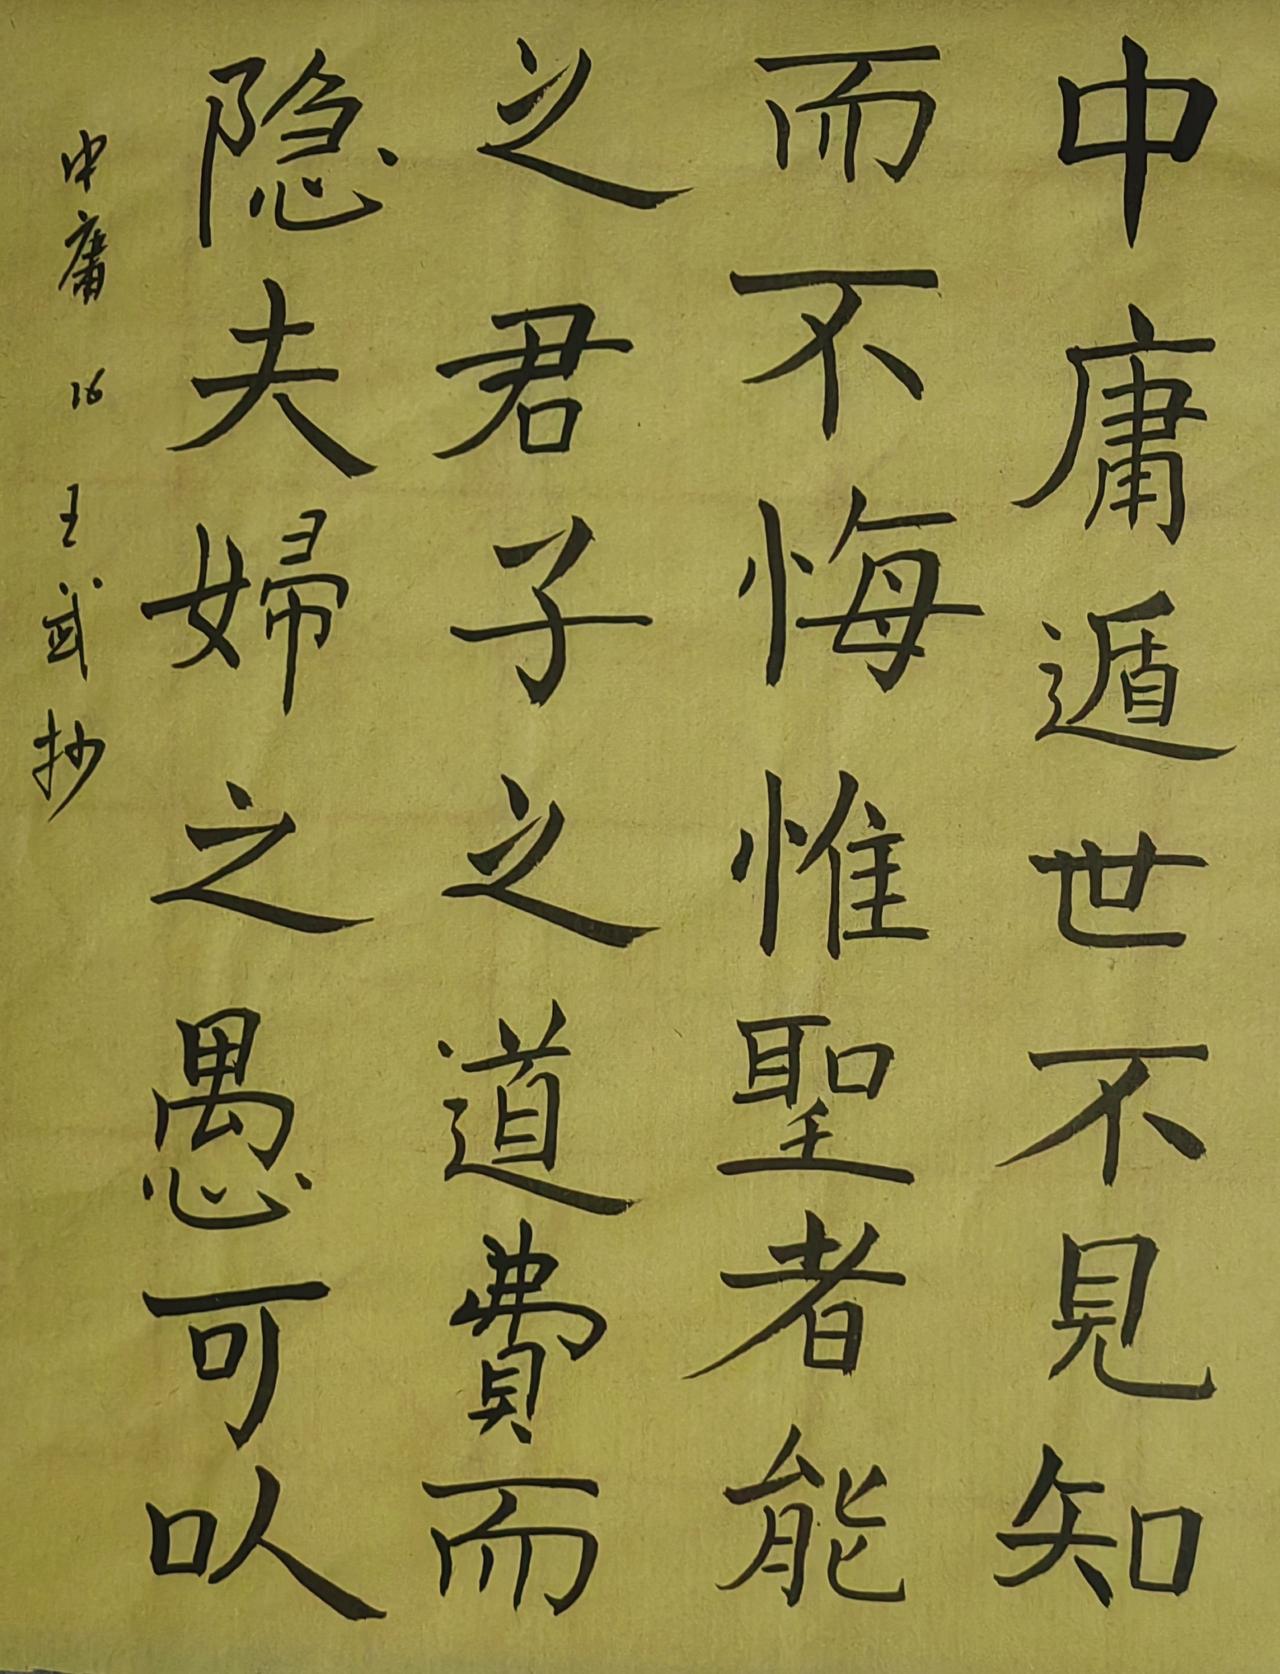 中庸遁世不見知
而不悔惟聖者能
之君子之道費而
隐夫婦之愚可以
中庸 16 王武抄